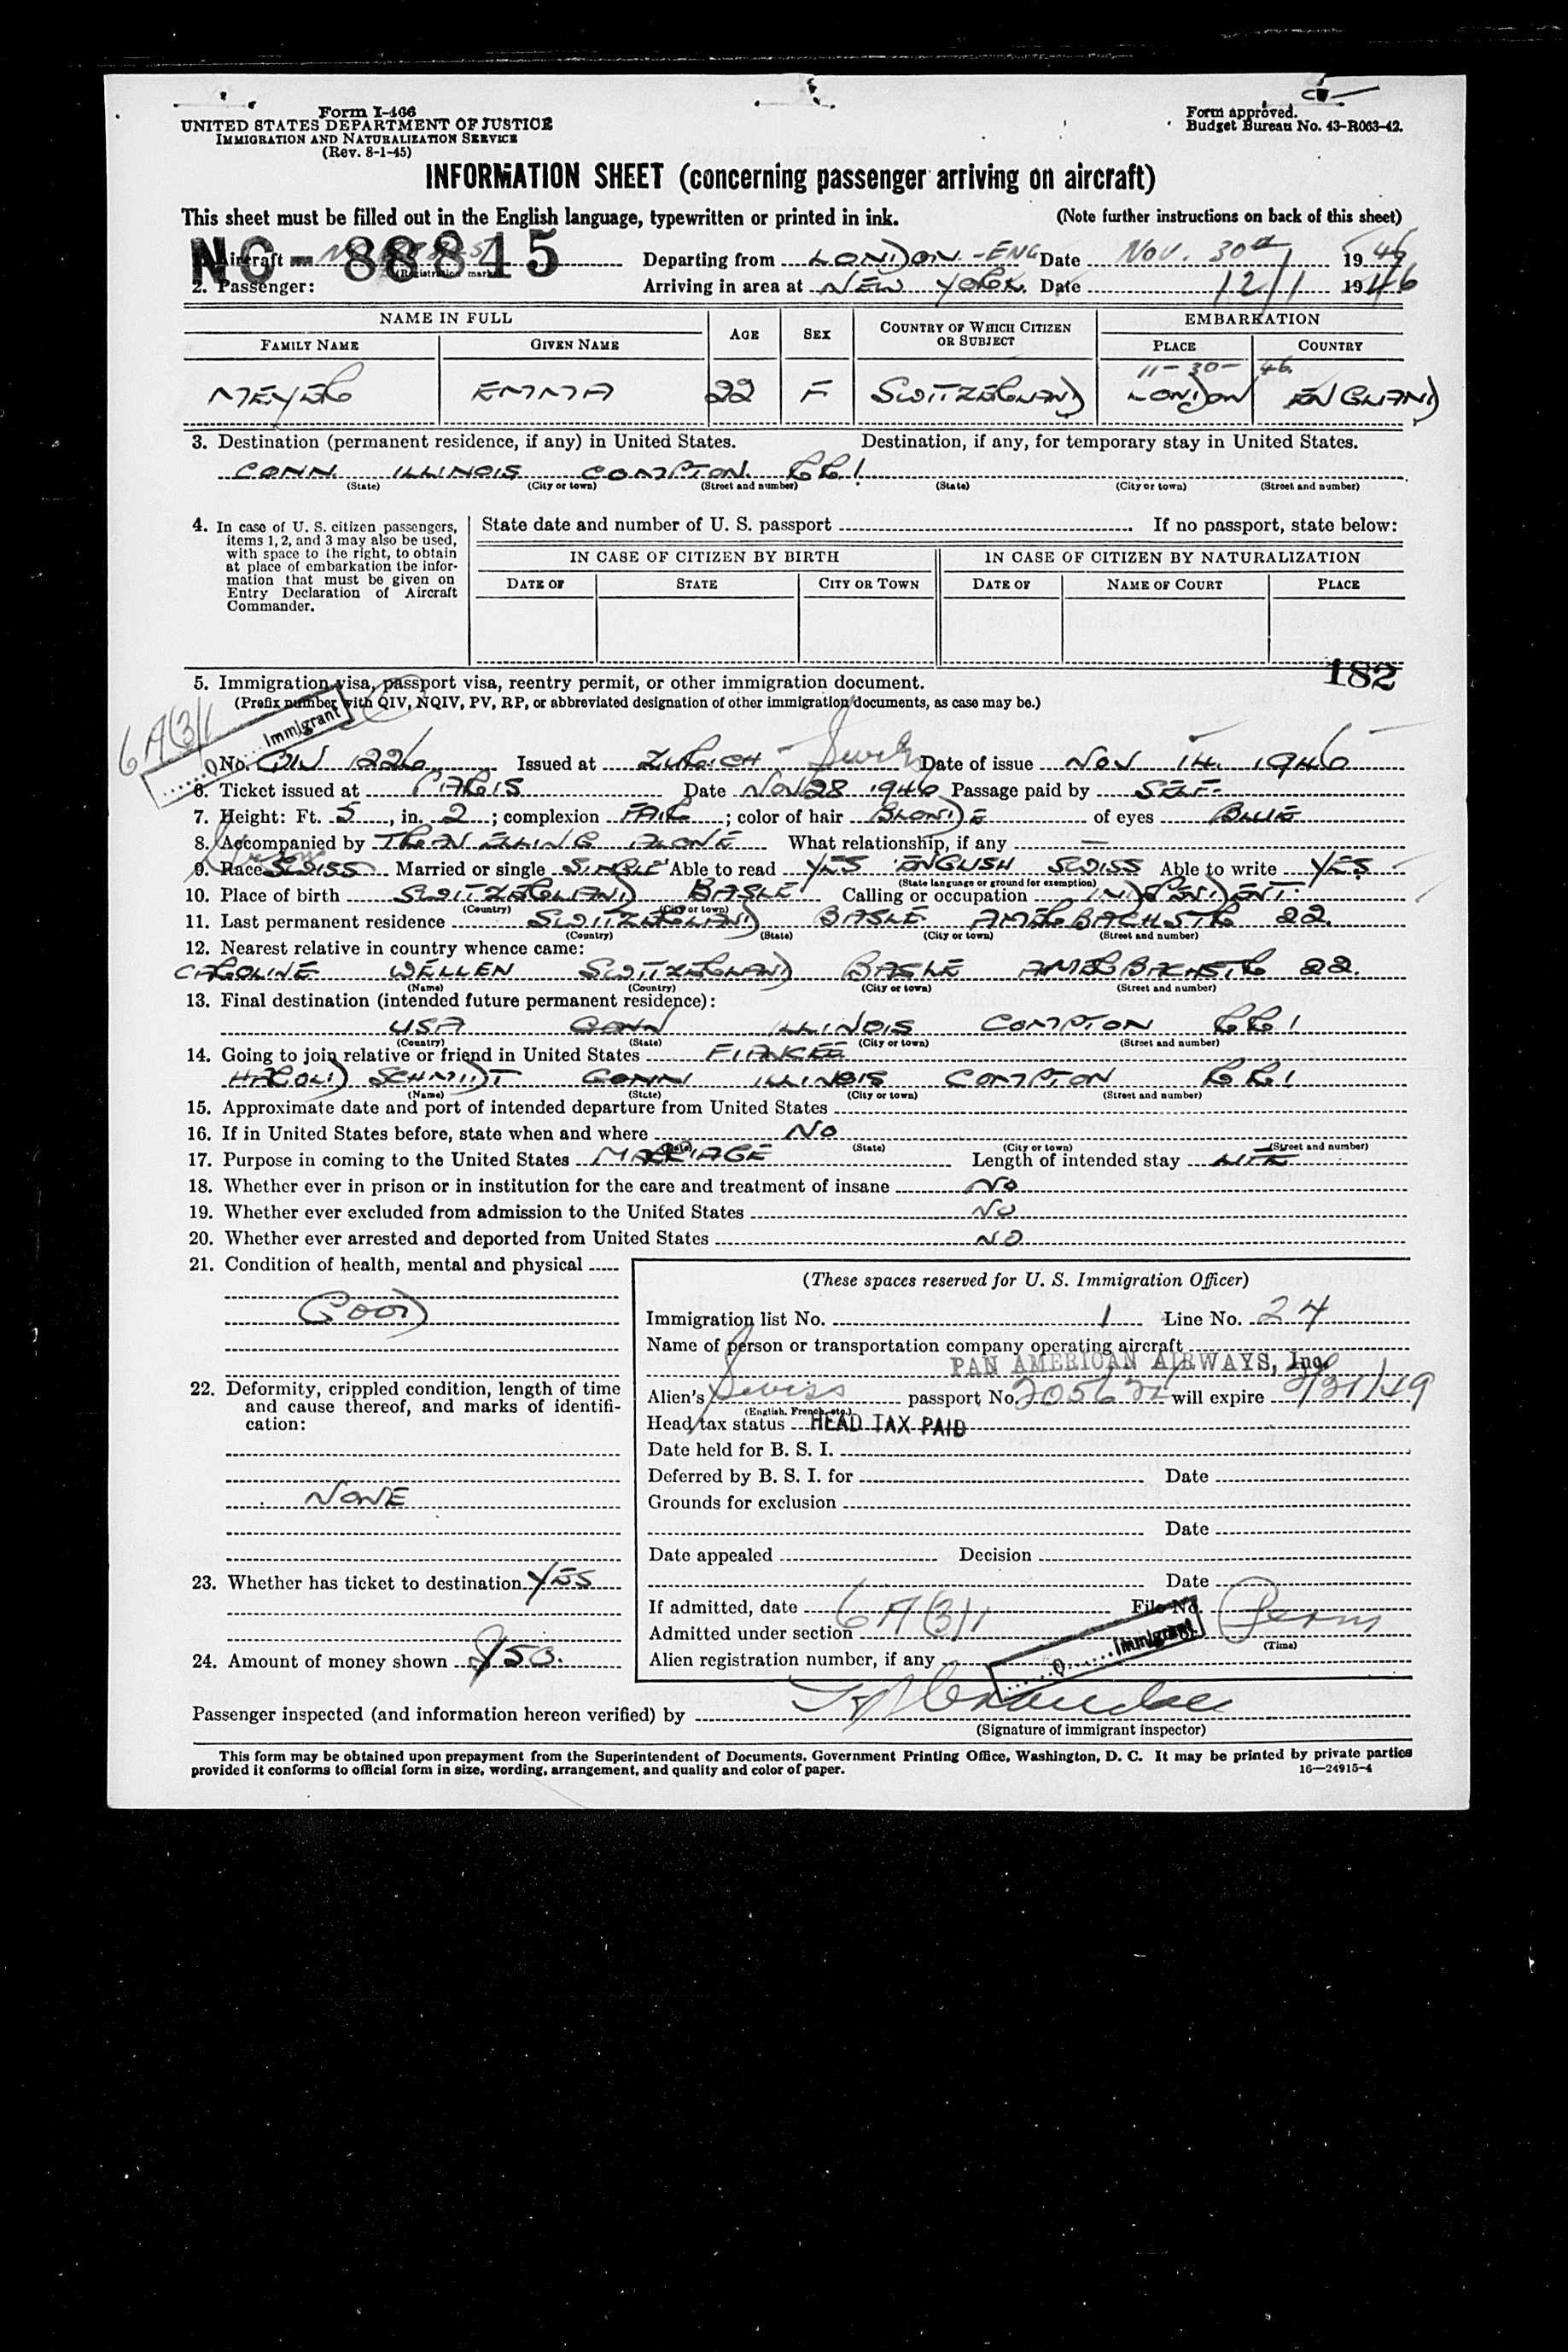 Form I-466
UNITED STATES DEPARTMENT OF JUSTICE
IMMIGRATION AND NATURALIZATION SERVICE
(Rev. 8-1-45)
Form approved.
Budget Bureau No. 43-R063-42.
INFORMATION SHEET (concerning passenger arriving on aircraft)
This sheet must be filled out in the English language, typewritten or printed in ink. (Note further instructions on back of this sheet)
NC-88845
Aircraft (Registration mark) Departing from LONDON - ENG Date NOV. 30th 1946
2. Passenger: Arriving in area at NEW YORK. Date 12/1 1946
NAME IN FULL AGE SEX COUNTRY OF WHICH CITIZEN OR SUBJECT EMBARKATION
FAMILY NAME GIVEN NAME PLACE COUNTRY
11-30-46
MEYER EMMA 22 F SWITZERLAND LONDON ENGLAND
3. Destination (permanent residence, if any) in United States. Destination, if any, for temporary stay in United States.
CONN ILLINOIS COMPTON RR1
(State) (City or town) (Street and number) (State) (City or town) (Street and number)
4. In case of U. S. citizen passengers, items 1, 2, and 3 may also be used, with space to the right, to obtain at place of embarkation the information that must be given on Entry Declaration of Aircraft Commander.
State date and number of U. S. passport If no passport, state below:
IN CASE OF CITIZEN BY BIRTH IN CASE OF CITIZEN BY NATURALIZATION
DATE OF STATE CITY OR TOWN DATE OF NAME OF COURT PLACE
182
5. Immigration visa, passport visa, reentry permit, or other immigration document.
(Prefix number with QIV, NQIV, PV, RP, or abbreviated designation of other immigration documents, as case may be.)
6A(3)1
Q Immigrant
No. QIV 1226 Issued at ZURICH - Switz Date of issue NOV 14. 1946
6. Ticket issued at PARIS Date NOV 28 1946 Passage paid by SELF
7. Height: Ft. 5, in. 2; complexion FAIR; color of hair BLONDE of eyes BLUE
8. Accompanied by TRAVELLING ALONE What relationship, if any —
9. Race SWISS Married or single SINGLE Able to read YES ENGLISH SWISS Able to write YES
(State language or ground for exemption)
10. Place of birth SWITZERLAND BASLE Calling or occupation INDEPENDENT
(Country) (City or town)
11. Last permanent residence SWITZERLAND BASLE AMERBACHSTR 22.
(Country) (State) (City or town) (Street and number)
12. Nearest relative in country whence came:
CAROLINE WELLEN SWITZERLAND BASLE AMERBACHSTR 22.
(Name) (Country) (City or town) (Street and number)
13. Final destination (intended future permanent residence):
USA CONN ILLINOIS COMPTON RR1
(Country) (State) (City or town) (Street and number)
14. Going to join relative or friend in United States FIANCEE
HAROLD SCHMIDT CONN ILLINOIS COMPTON RR1
(Name) (State) (City or town) (Street and number)
15. Approximate date and port of intended departure from United States
16. If in United States before, state when and where NO
(State) (City or town) (Street and number)
17. Purpose in coming to the United States MARRIAGE Length of intended stay LIFE
18. Whether ever in prison or in institution for the care and treatment of insane NO
19. Whether ever excluded from admission to the United States NO
20. Whether ever arrested and deported from United States NO
21. Condition of health, mental and physical
GOOD
22. Deformity, crippled condition, length of time and cause thereof, and marks of identification:
NONE
23. Whether has ticket to destination YES
24. Amount of money shown $50.
(These spaces reserved for U. S. Immigration Officer)
Immigration list No. 1 Line No. 24
Name of person or transportation company operating aircraft
PAN AMERICAN AIRWAYS, Inc.
Alien's Swiss passport No. will expire
(English, French, etc.)
Head tax status HEAD TAX PAID
Date held for B. S. I.
Deferred by B. S. I. for Date
Grounds for exclusion
Date
Date appealed Decision
Date
If admitted, date File No.
Admitted under section 6A(3)1 Perm
(Time)
Alien registration number, if any
Q Immigrant
Passenger inspected (and information hereon verified) by
(Signature of immigrant inspector)
This form may be obtained upon prepayment from the Superintendent of Documents, Government Printing Office, Washington, D. C. It may be printed by private parties
provided it conforms to official form in size, wording, arrangement, and quality and color of paper. 16—24915-4